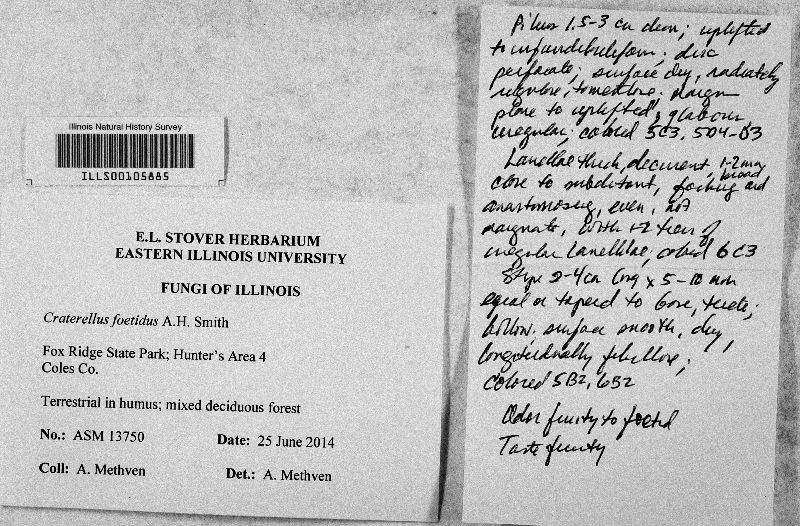 Illinois Natural History Survey
ILLS00105885
E.L. STOVER HERBARIUM
EASTERN ILLINOIS UNIVERSITY
FUNGI OF ILLINOIS
Craterellus foetidus A.H. Smith
Fox Ridge State Park; Hunter's Area 4
Coles Co.
Terrestrial in humus; mixed deciduous forest
No.: ASM 13750 Date: 25 June 2014
Coll: A. Methven Det.: A. Methven
Pileus 1.5-3 cm diam; uplifted
to infundibuliform; disc
perforate; surface dry, radiately
rugulose, tomentose; margin
plane to uplifted, glabrous,
irregular; colored 5C3, 5D4-D3
Lamellae thick, decurrent, 1-2 mm broad
close to subdistant, forking and
anastomosing, even, not
marginate, with 1-2 tiers of
irregular lamellulae; colored 6C3
Stipe 2-4 cm long x 5-10 mm
equal or tapered to base, terete;
hollow; surface smooth, dry,
longitudinally fibrillose;
colored 5B2, 6B2
Odor fruity to foetid
Taste fruity